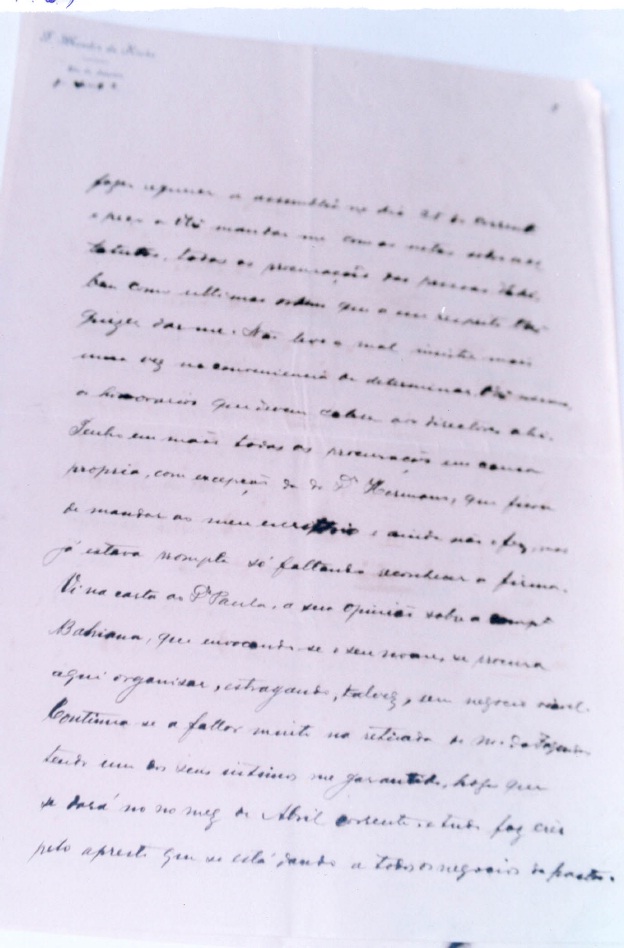 Rio de Janeiro
fazer reunir a assembléa no dia 25 do corrente
e peço a VEx mandar me com as notas sobre os
Estatutos, todas as procurações das pessoas
bem como ultimas ordens que a seu respeito VEx
quizer dar-me. Não leve a mal insistir mais
uma vez na conveniencia de determinar VEx
os honorarios que devem caber aos directores ahi.
Tenho em mãos todas as procurações em causa
propria, com excepção da do Dr Hermano, que ficou
de mandar ao meu escriptorio e ainda não o fez, mas
já estava prompta só faltando reconhecer a firma.
Vi na carta ao Dr Paula, a sua opinião sobre a comp.
Bahiana, que invocando-se o seu nome, se procura
aqui organisar, estragando, talvez, um negocio viavel.
Continua se a fallar muito na retirada do M. da Fazenda
tendo um dos seus intimos me garantido, hoje que
se dará no mez de Abril corrente, e tudo faz crer
pelo apresto que se está dando a todos os negocios da pasta.